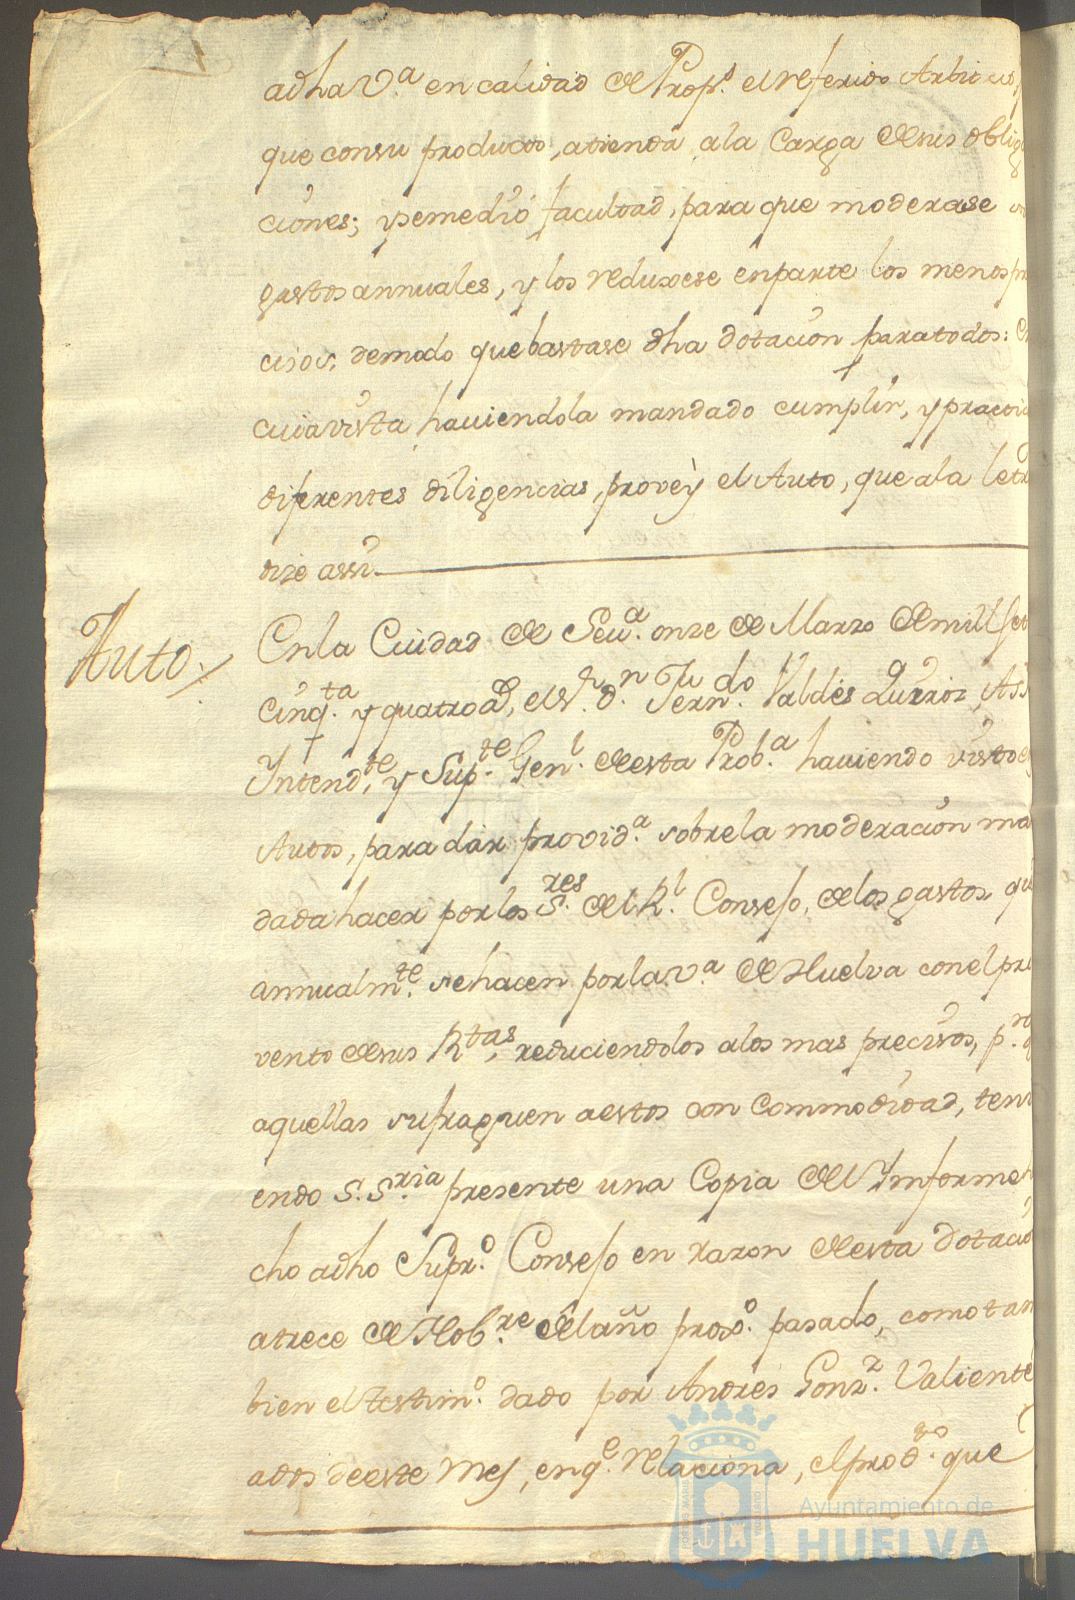 adha V.ª en calidad de Prop.s el referido Arbitrio
que consu producto, atienda ala Carga desus oblig
ciones; y semedió facultad, para que moderase
gastos annuales, y los reduxese enparte los menos pre
cisos, demodo que bastase dha dotación paratodos: 
cuia vista, hauiendola mandado cumplir, y practic
diferentes diligencias, proveý el Auto, que ala letr
dize assi
Auto
Enla Ciudad de Seu.ª onze de Marzo demill Set
cinq.ta y quatro a.s, el S.r D.n Fern.do Valdés Quiròz, Ass
Intend.te, y Sup.te Gen.l desta Prob.ª haviendo visto
Autos, para dár provid.ª sobrela moderación ma
dada hacer por los S.res del R.l Consejo, delos gastos, qu
annualm.te se hacen por la V.ª de Huelva con el pro
vento desus R.tas, reduciendolos alos mas precisos, p.r q
aquellas sufraguen aestos con Commodidad, teni
endo S. S.ria presente una Copia del Ynforme
cho adho Supr.o Consejo en razon desta dotació
atrece de Nob.re del año prox.o pasado, como tam
bien el testim.o dado por Andrés Gonz.z Valiente
ados deeste Mes, enq.e relaciona, el prod.to que
Ayuntamiento de
HUELVA